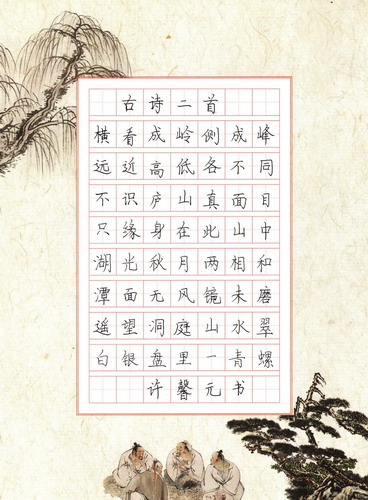 古诗二首
横看成岭侧成峰
远近高低各不同
不识庐山真面目
只缘身在此山中
湖光秋月两相和
潭面无风镜未磨
遥望洞庭山水翠
白银盘里一青螺
许馨元书